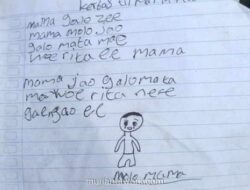 mama gojo zee
mama molo jao
galo mata moe
noe rita ee mama
mama jao galo mata
ma noe rita nere
ee
molo mama